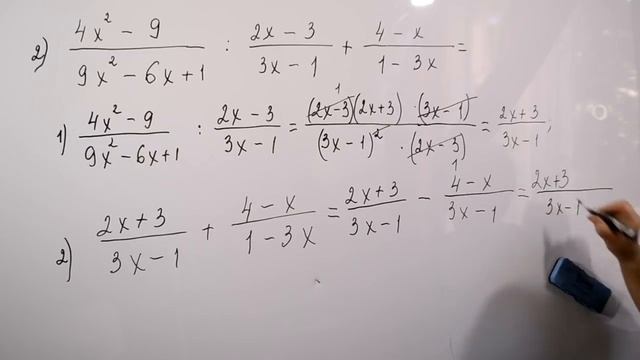 2) (4x² - 9)/(9x² - 6x + 1) : (2x - 3)/(3x - 1) + (4 - x)/(1 - 3x) =
1) (4x² - 9)/(9x² - 6x + 1) : (2x - 3)/(3x - 1) = ((2x-3)(2x+3) · (3x-1))/((3x-1)² · (2x-3)) = (2x+3)/(3x-1);
2) (2x + 3)/(3x - 1) + (4 - x)/(1 - 3x) = (2x+3)/(3x-1) - (4-x)/(3x-1) = (2x+3)/(3x-1